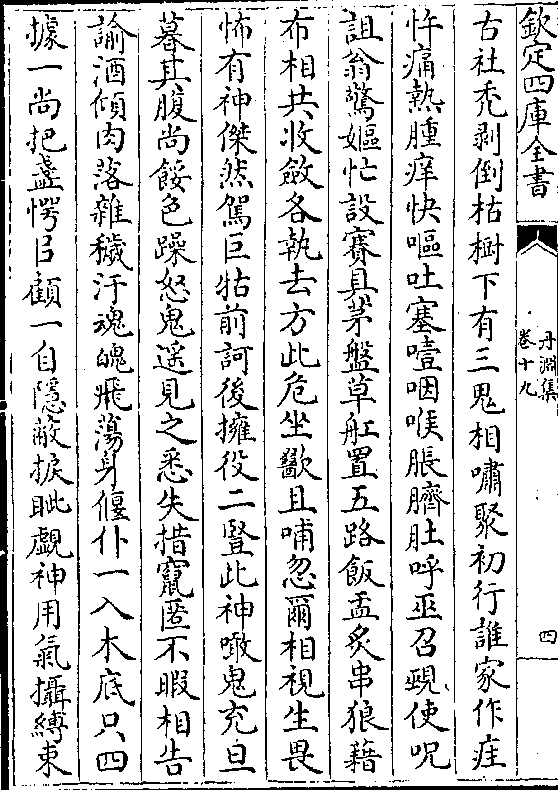 欽定四庫全書
丹淵集
卷十九
四
古社禿剥倒枯樹下有三鬼相嘯聚初行誰家作疰
忤痛熱腫痒快嘔吐塞噎咽喉脹臍肚呼巫召覡使呪
詛翁驚嫗忙設賽具茅盤草舡置五路飯盂炙串狼藉
布相共收斂各執去方此危坐歠且哺忽爾相視生畏
怖有神傑然駕巨牯前訶後擁役二豎此神噉鬼充旦
暮其腹尚餒色躁怒鬼遥見之悉失措竄匿不暇相告
諭酒傾肉落雜穢汙魂魄飛蕩身偃仆一入木底只四
據一尚把盞愕㠯顧一自隱蔽捩眦覷神用氣攝縛束